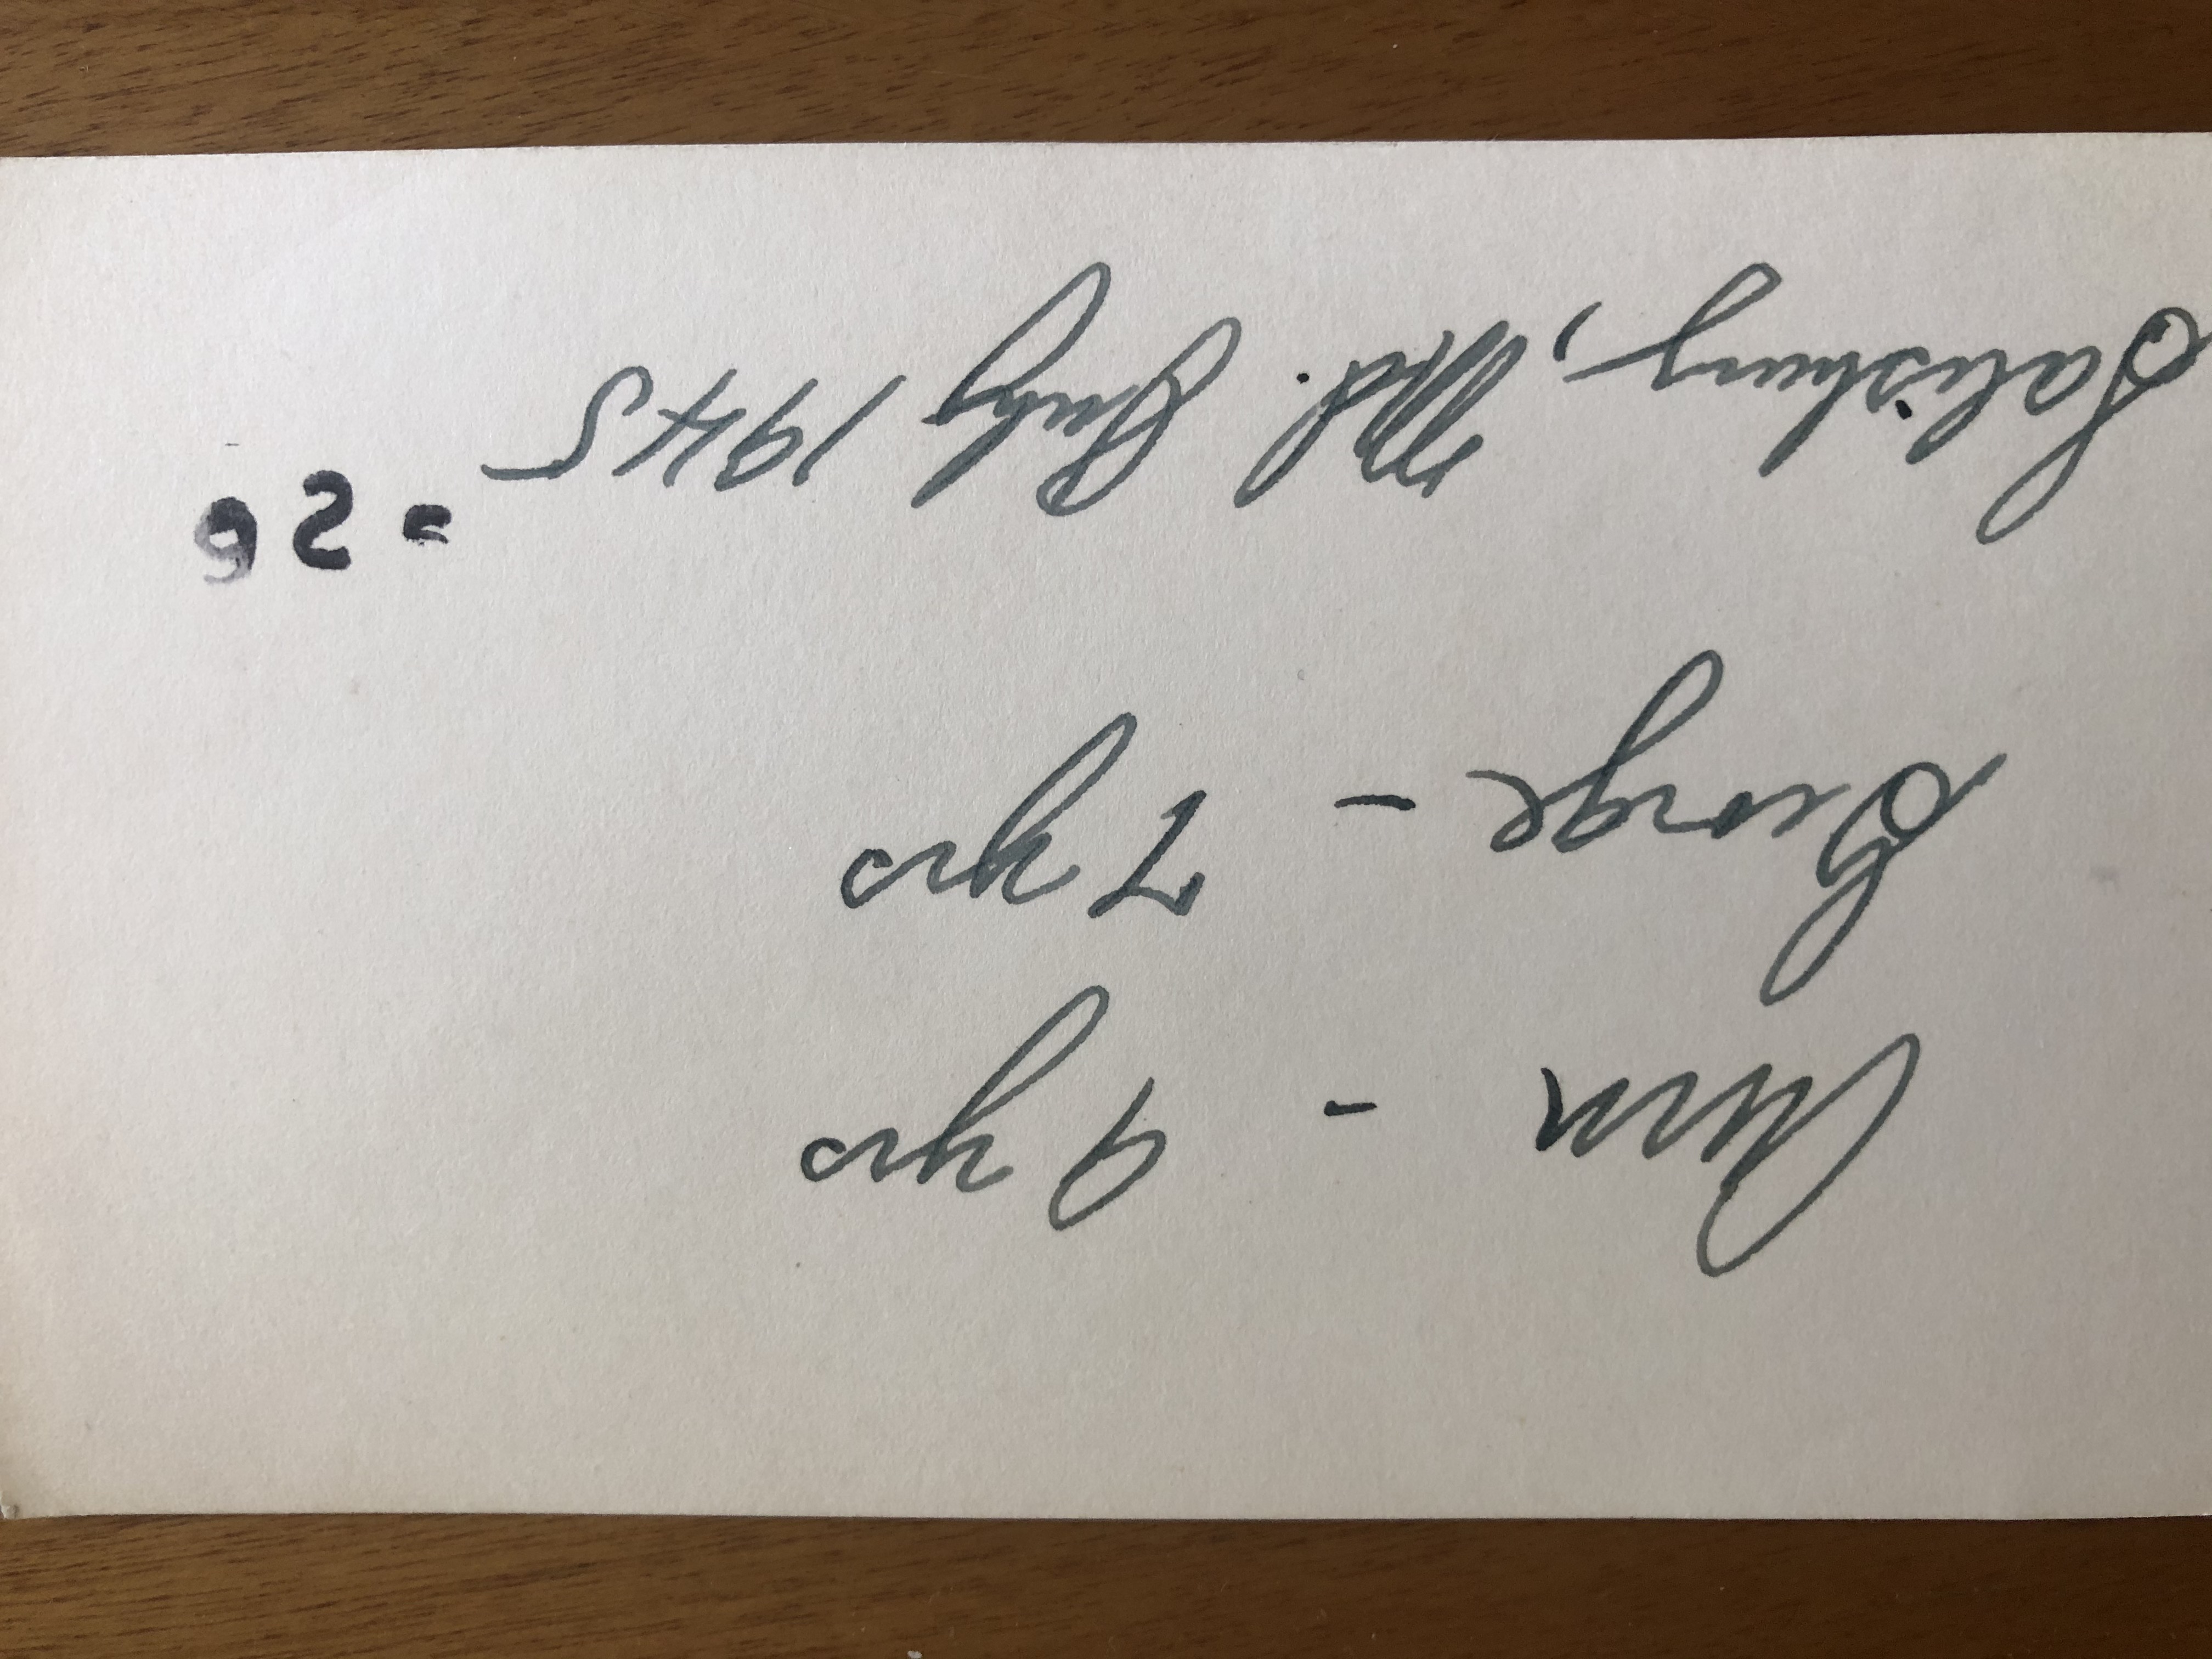 Ann - 9 yrs
George - 7 yrs
Salisbury, Md. July 1945